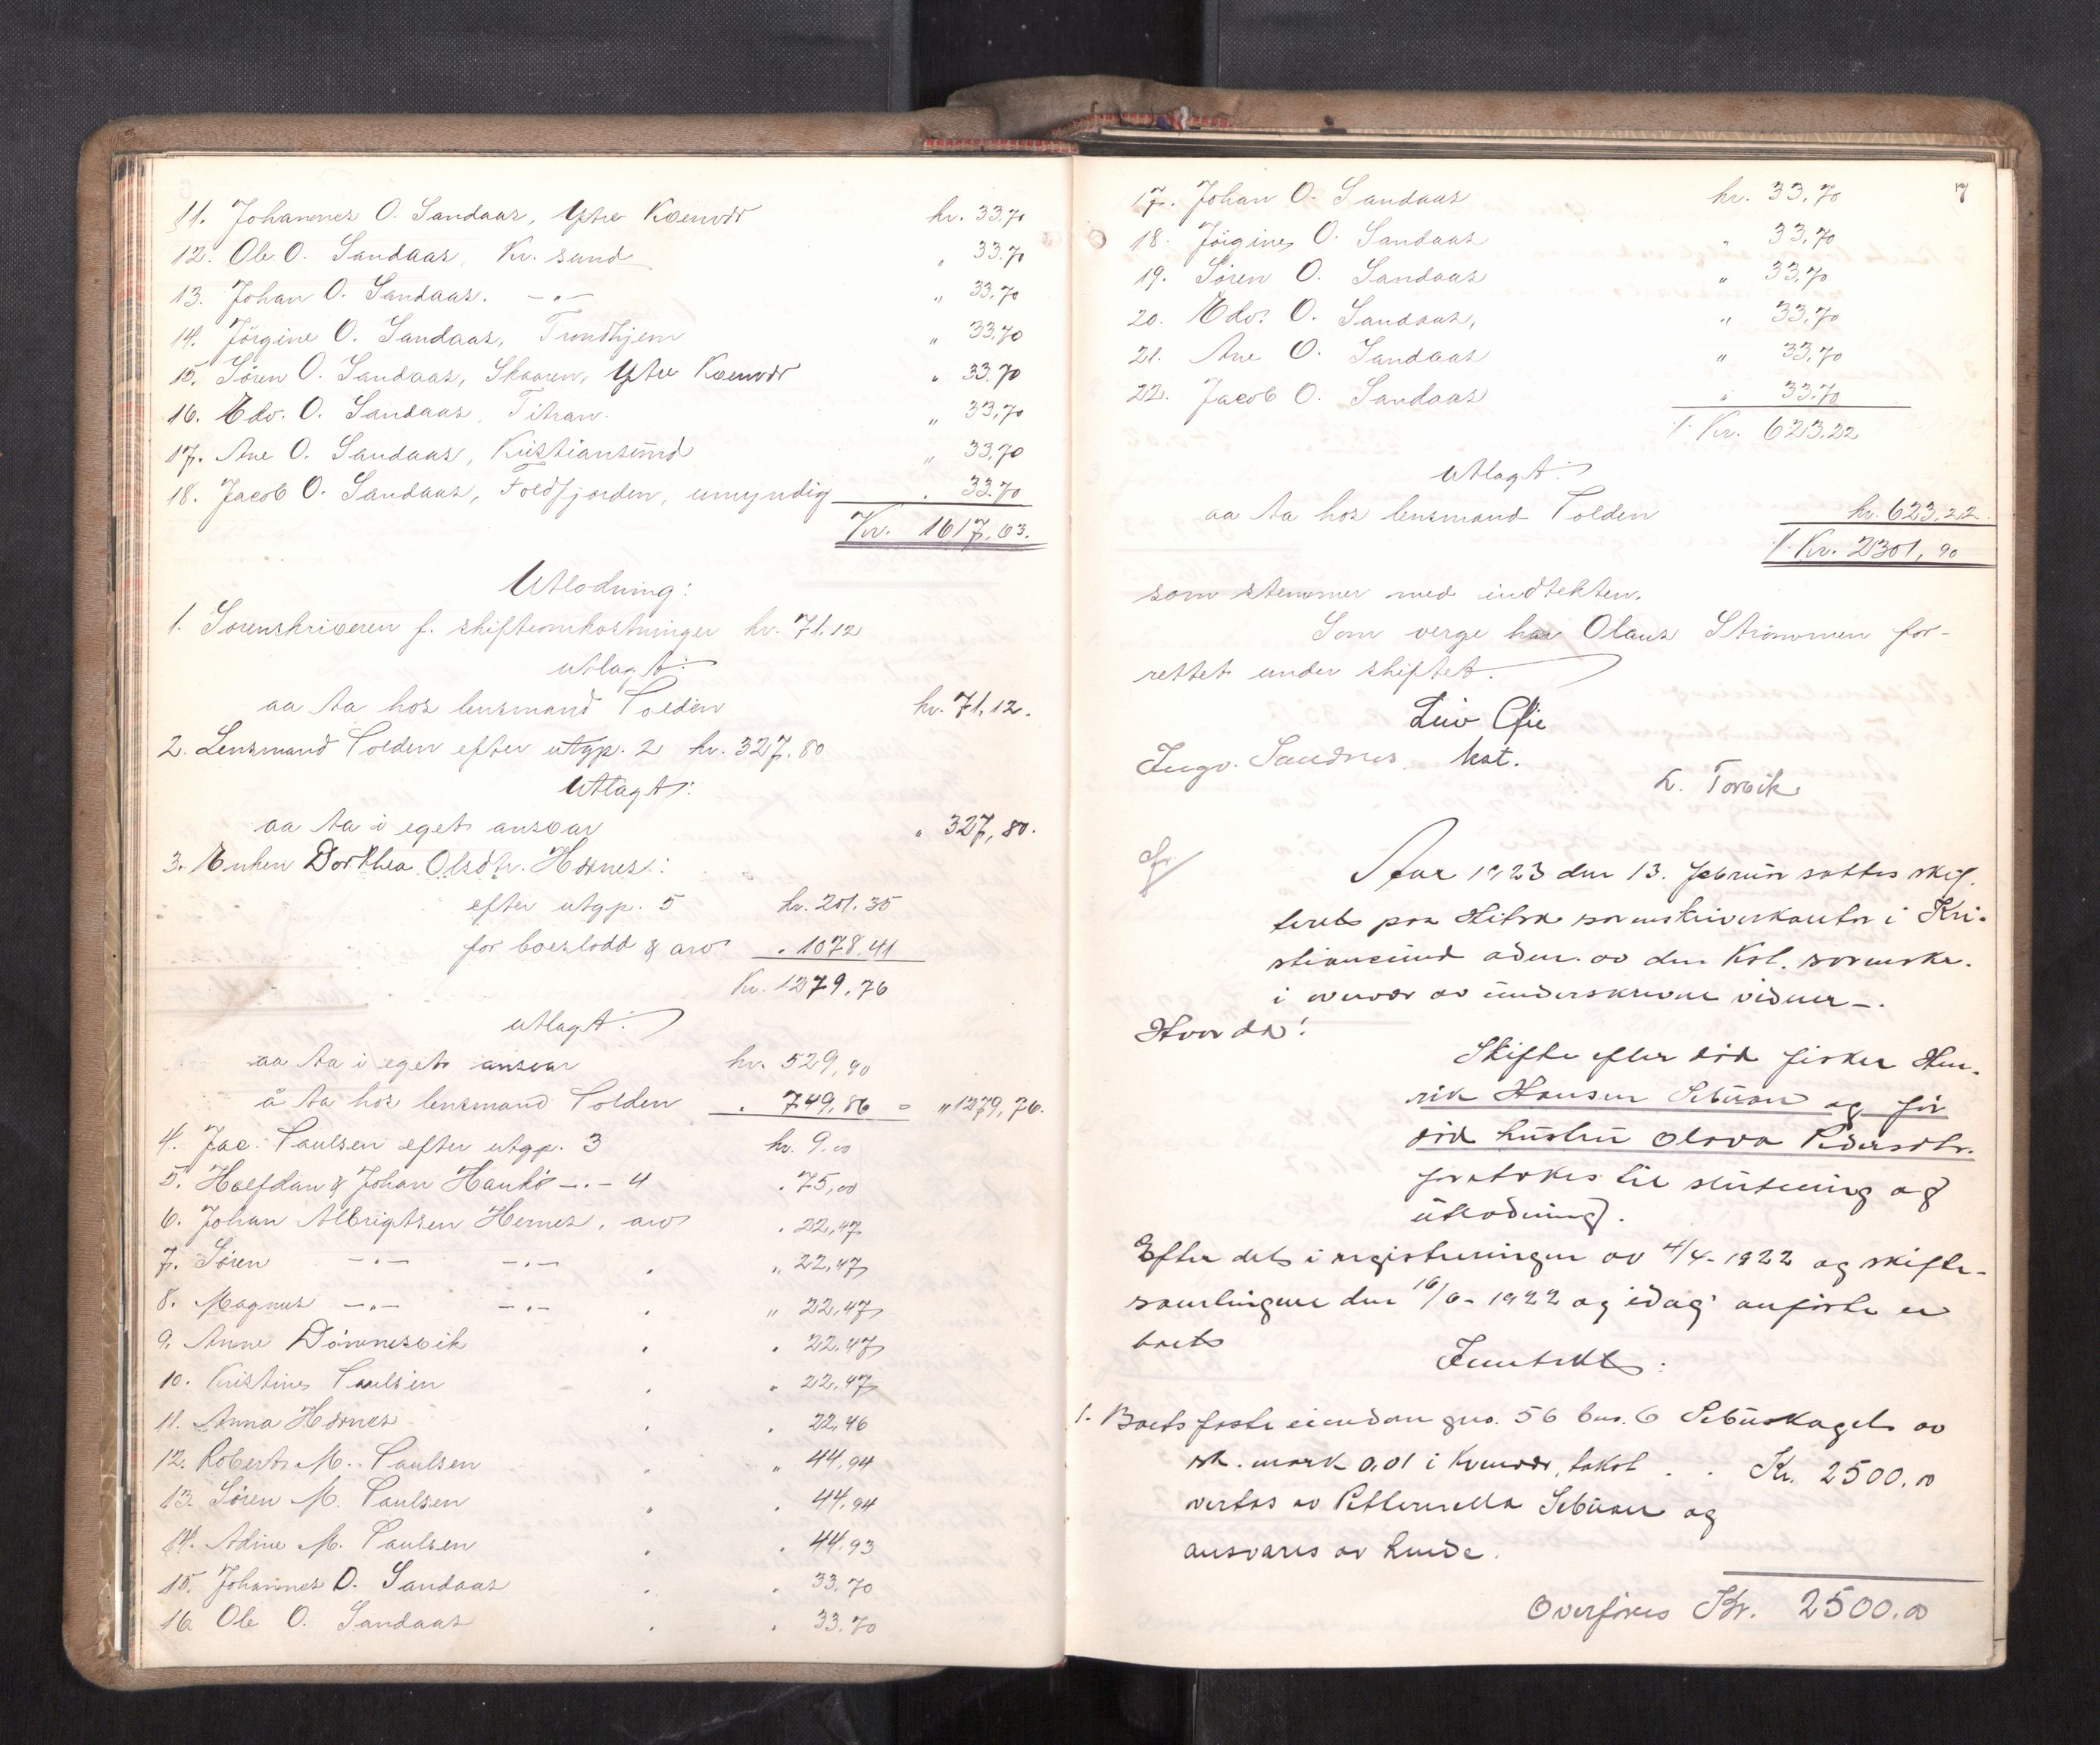 11. Johannes O. Sandaas, Ytre Kvenvær kr. 33.70
12. Ole O. Sandaas, Kr. sund " 33.70
13. Johan O. Sandaas. -"- " 33.70
14. Jörgine O. Sandaas, Trondhjem " 33.70
15. Sören O. Sandaas, Skaaren, Ytre Kvenvær " 33.70
16. Edv. O. Sandaas, Titran. " 33,70
17. Ane O. Sandaas, Kristiansund " 33,70
18. Jacob O. Sandaas, Foldfjorden, umyndig " 33.70
Kr. 1617,63.
Utlodning:
1. Sorenskriveren f. skifteomkostninger kr. 71.12
utlagt:
aa ta hos lensmand Polden kr. 71,12.
2. Lensmand Polden efter utgp. 2 kr. 327.80
Utlagt:
aa ta i eget ansvar " 327,80.
3. Enken Dorthea Olsdtr. Hernes:
efter utgp. 5 kr. 201.35
for boeslodd & arv " 1078.41
Kr. 1279,76
utlagt:
aa ta i eget ansvar kr. 529,90
å ta hos lensmand Polden " 749,86 = " 1279,76.
4. Jac. Paulsen efter utgp. 3 kr. 9.00
5. Halfdan & Johan Hankö -"- 4 " 75,00
6. Johan Albrigtsen Hernes, arv " 22,47
7. Sören -"- -"- " " 22,47
8. Magnus -"- -"- " " 22,47
9. Anne Dömmesvik " " 22.47
10. Kristine Paulsen " " 22,47
11. Anna Hernes " " 22,46
12. Robert M. Paulsen " " 44,94
13. Sören M. Paulsen " " 44,94
14. Adine M. Paulsen " " 44,93
15. Johannes O. Sandaas " " 33.70
16 Ole O. Sandaas " " 33.70
7
17. Johan O. Sandaas kr. 33.70
18. Jörgine O. Sandaas " 33,70
19. Sören O. Sandaas " 33,70
20. Edv. O. Sandaas, " 33,70
21. Ane O. Sandaas " 33,70
22. Jacob O. Sandaas " 33.70
·/· Kr. 623.22
utlagt:
aa ta hos lensmand Polden kr. 623,22.
·/· Kr. 2301,90
som stemmer med indtekten.
Som verge har Olaus Strömmen for-
rettet under skiftet.
Leiv
Ingv. Sandnes kst.
L. Torvik
Aar 1923 den 13. februar sattes skif-
teret paa Hitra sorenskriverkontor i Kri-
stiansund adm. av den Kst. sorenskr.
i overvær av underskrevne vidner -.
Hvorda:
Skifte efter död fisker Hen-
rik Hansen Sebuan og för
död hustru Olava Pedersdtr.
foretokes til slutning og
utlodning.
Efter det i registreringen av 4/4-1922 og skifte-
samlingene den 16/6-1922 og idag anförte er
boets
Inntekt:
1. Boets faste eiendom gno. 56 bno. 6 Sebuskaget av
sk. mark 0,01 i Kvenvær, takst . . Kr. 2500,00
overtas av Petternella Sebuan og
ansvares av hende.
Overföres Kr. 2500.00